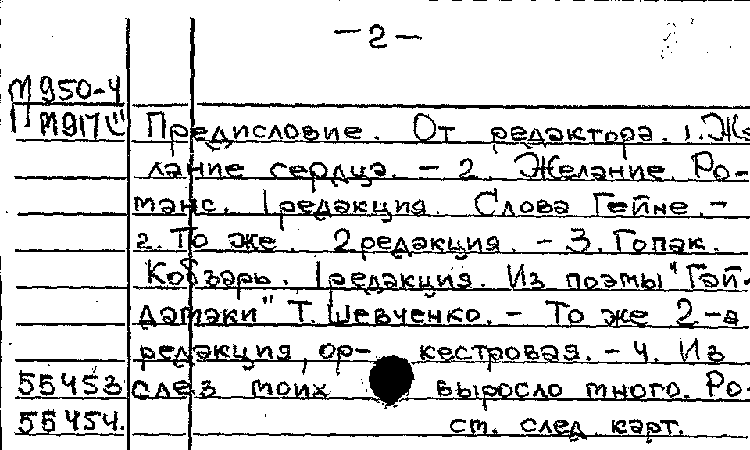 -2-
М950-4
М917 Предисловие. От редактора. 1. Же
лание сердца. - 2. Желание. Ро-
манс. 1 редакция. Слова Гейне. -
2. То же. 2 редакция. - 3. Гопак.
Кобзарь. 1 редакция. Из поэмы "Гай-
дамаки" Т. Шевченко. - То же 2-я
редакция, ор- кестровая. - 4. Из
55453 слез моих выросло много. Ро-
55454. ст. след. карт.